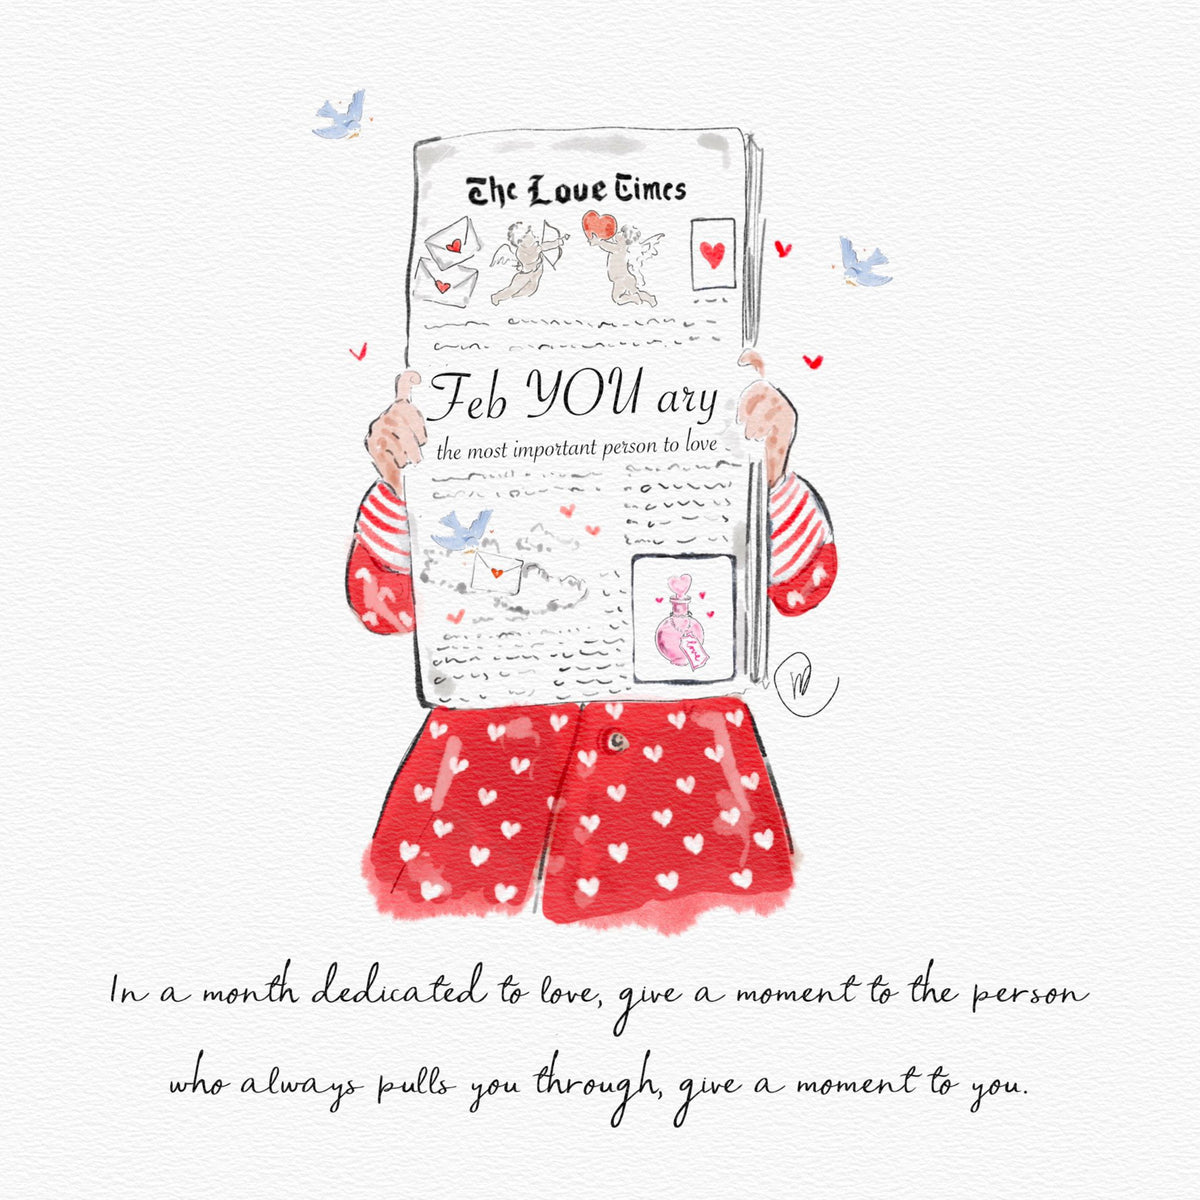 The Love Times
Feb YOU ary
the most important person to love
love
In a month dedicated to love, give a moment to the person
who always pulls you through, give a moment to you.